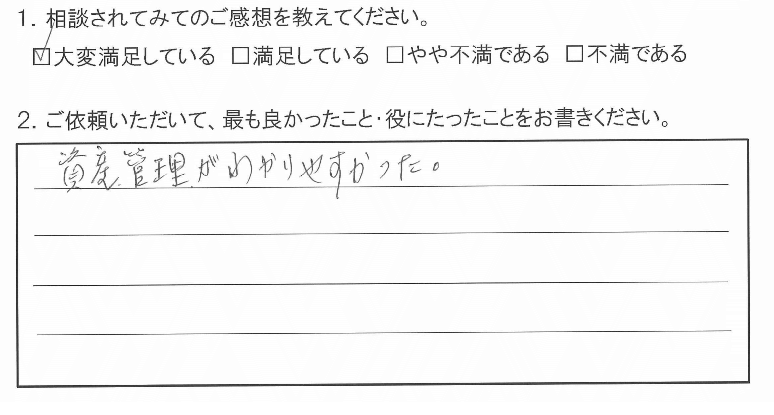 1. 相談されてみてのご感想を教えてください。
☑大変満足している □満足している □やや不満である □不満である
2. ご依頼いただいて、最も良かったこと・役にたったことをお書きください。
資産管理がわかりやすかった。